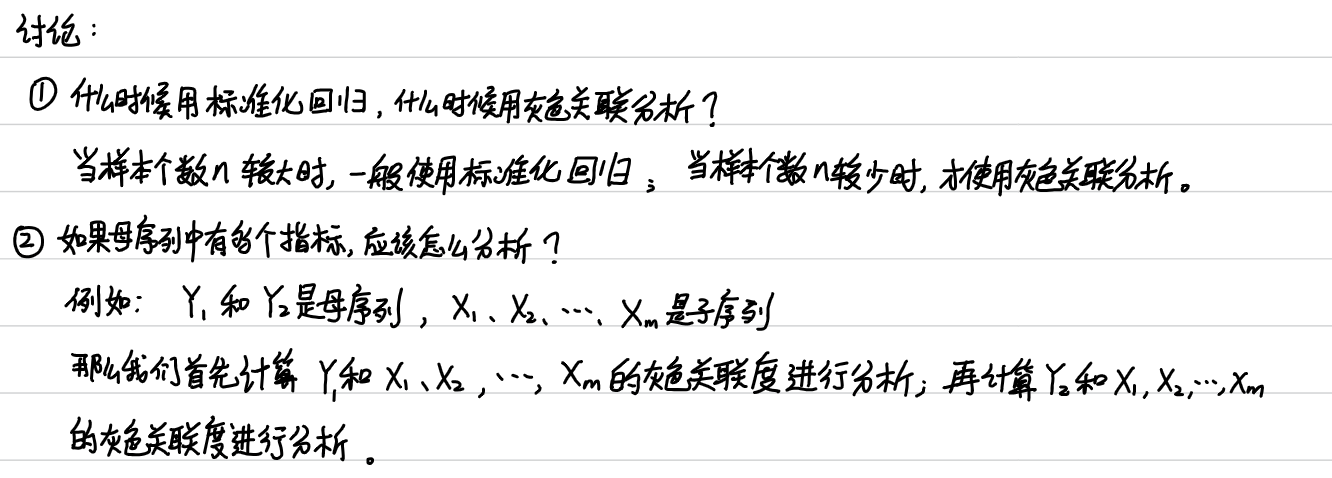 讨论：
① 什么时候用标准化回归，什么时候用灰色关联分析？
当样本个数n较大时，一般使用标准化回归；当样本个数n较少时，才使用灰色关联分析。
② 如果母序列中有多个指标，应该怎么分析？
例如：Y₁和Y₂是母序列，X₁、X₂、⋯、Xₘ是子序列
那么我们首先计算Y₁和X₁、X₂，⋯，Xₘ的灰色关联度进行分析；再计算Y₂和X₁，X₂，⋯，Xₘ
的灰色关联度进行分析。